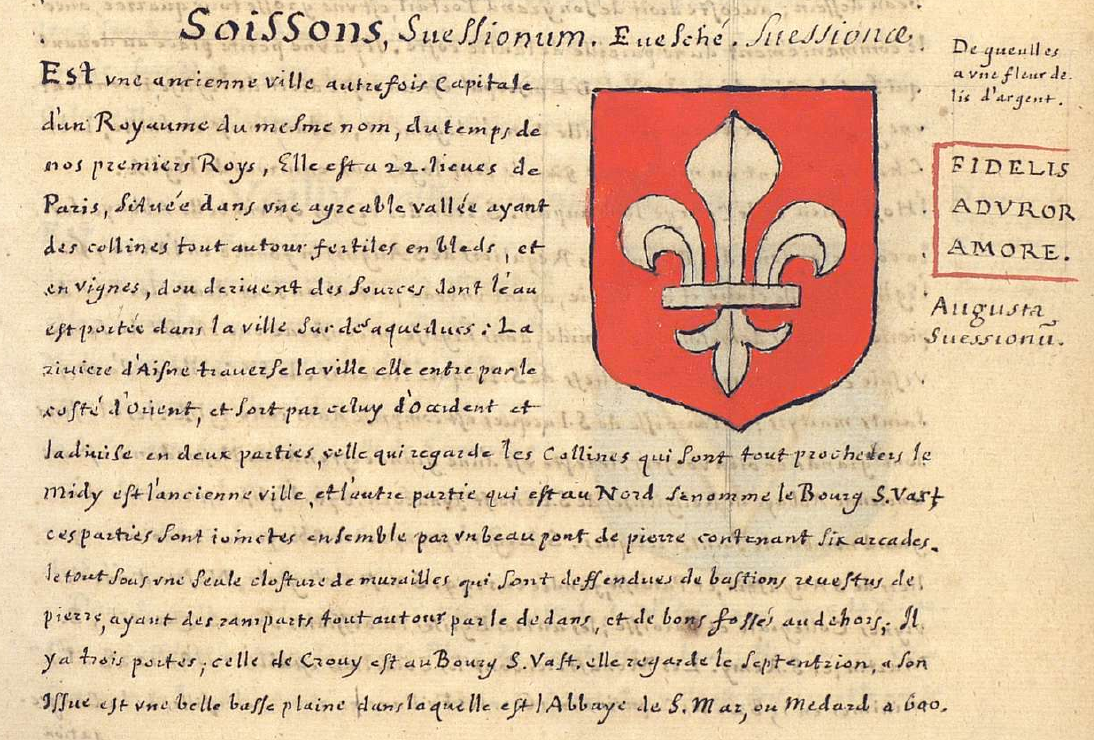 Soissons, Suessionum. Euesché. Suessionæ
Est vne ancienne ville autrefois Capitale
d'un Royaume du mesme nom, du temps de
nos premiers Roys, Elle est a 22. lieues de
Paris, située dans vne agreable vallée ayant
des collines tout autour fertiles en bleds, et
en vignes, dou deriuent des sources dont l'eau
est portée dans la ville sur des aqueducs: La
riuiere d'Aisne trauerse la ville elle entre par le
costé d'Orient, et sort par celuy d'Occident et
la diuise en deux parties, celle qui regarde les Collines qui sont tout proche vers le
Midy est l'ancienne ville, et l'autre partie qui est au Nord se nomme le Bourg S. Vast,
ces parties sont iointes ensemble par vn beau pont de pierre contenant six arcades.
le tout sous vne seule closture de murailles qui sont deffendues de bastions reuestus de
pierre, ayant des ramparts tout autour par le dedans, et de bons fossés au dehors; Il
y a trois portes; celle de Crouy est au Bourg S. Vast. elle regarde le septentrion, a son
Issue est vne belle basse plaine dans laquelle est l'Abbaye de S. Mar, ou Medard a 600.
De gueulles
a vne fleur de
lis d'argent.
FIDELIS
ADVROR
AMORE.
Augusta
Suessionũ.